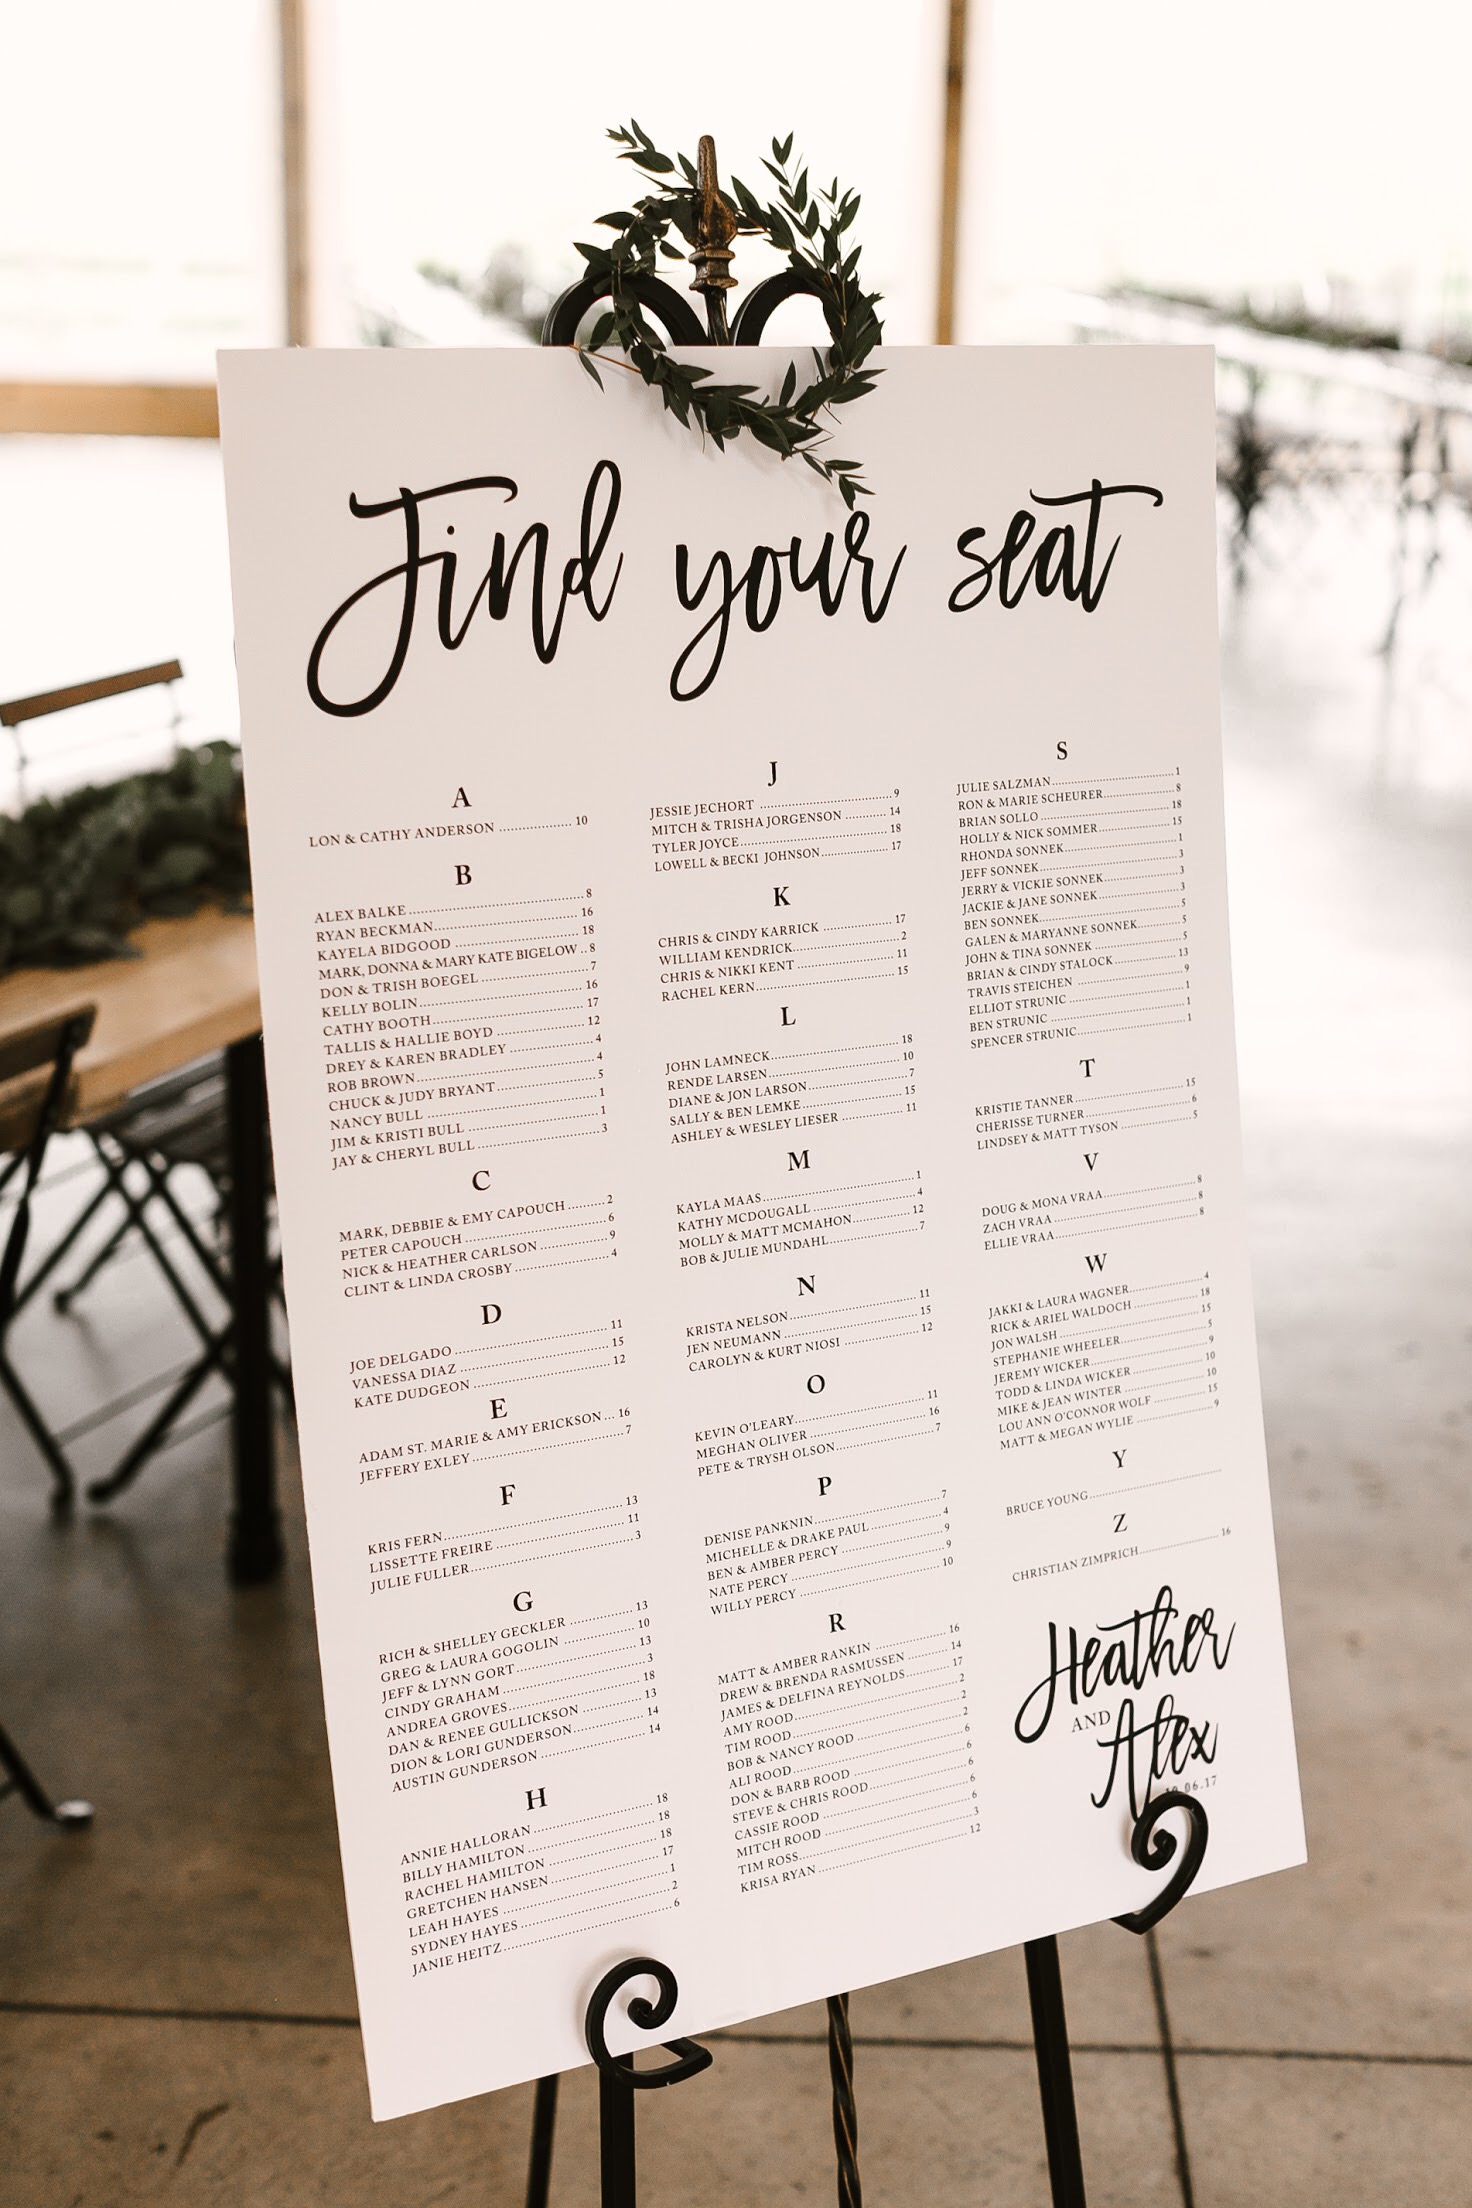 Find your seat
A
LON & CATHY ANDERSON 10
B
ALEX BALKE 8
RYAN BECKMAN 16
KAYELA BIDGOOD 18
MARK, DONNA & MARY KATE BIGELOW 8
DON & TRISH BOEGEL 7
KELLY BOLIN 16
CATHY BOOTH 17
TALLIS & HALLIE BOYD 12
DREY & KAREN BRADLEY 4
ROB BROWN 4
CHUCK & JUDY BRYANT 5
NANCY BULL 1
JIM & KRISTI BULL 1
JAY & CHERYL BULL 3
C
MARK, DEBBIE & EMY CAPOUCH 2
PETER CAPOUCH 6
NICK & HEATHER CARLSON 9
CLINT & LINDA CROSBY 4
D
JOE DELGADO 11
VANESSA DIAZ 15
KATE DUDGEON 12
E
ADAM ST. MARIE & AMY ERICKSON 16
JEFFERY EXLEY 7
F
KRIS FERN 13
LISSETTE FREIRE 11
JULIE FULLER 3
G
RICH & SHELLEY GECKLER 13
GREG & LAURA GOGOLIN 10
JEFF & LYNN GORT 13
CINDY GRAHAM 3
ANDREA GROVES 18
DAN & RENEE GULLICKSON 13
DION & LORI GUNDERSON 14
AUSTIN GUNDERSON 14
H
ANNIE HALLORAN 18
BILLY HAMILTON 18
RACHEL HAMILTON 18
GRETCHEN HANSEN 17
LEAH HAYES 1
SYDNEY HAYES 2
JANIE HEITZ 6
J
JESSIE JECHORT 9
MITCH & TRISHA JORGENSON 14
TYLER JOYCE 18
LOWELL & BECKI JOHNSON 17
K
CHRIS & CINDY KARRICK 17
WILLIAM KENDRICK 2
CHRIS & NIKKI KENT 11
RACHEL KERN 15
L
JOHN LAMNECK 18
RENDE LARSEN 10
DIANE & JON LARSON 7
SALLY & BEN LEMKE 15
ASHLEY & WESLEY LIESER 11
M
KAYLA MAAS 1
KATHY MCDOUGALL 4
MOLLY & MATT MCMAHON 12
BOB & JULIE MUNDAHL 7
N
KRISTA NELSON 11
JEN NEUMANN 15
CAROLYN & KURT NIOSI 12
O
KEVIN O'LEARY 11
MEGHAN OLIVER 16
PETE & TRYSH OLSON 7
P
DENISE PANKNIN 7
MICHELLE & DRAKE PAUL 4
BEN & AMBER PERCY 9
NATE PERCY 9
WILLY PERCY 10
R
MATT & AMBER RANKIN 16
DREW & BRENDA RASMUSSEN 14
JAMES & DELFINA REYNOLDS 17
AMY ROOD 2
TIM ROOD 2
BOB & NANCY ROOD 2
ALI ROOD 6
DON & BARB ROOD 6
STEVE & CHRIS ROOD 6
CASSIE ROOD 6
MITCH ROOD 6
TIM ROSS 3
KRISA RYAN 12
S
JULIE SALZMAN 1
RON & MARIE SCHEURER 8
BRIAN SOLLO 18
HOLLY & NICK SOMMER 15
RHONDA SONNEK 1
JEFF SONNEK 3
JERRY & VICKIE SONNEK 3
JACKIE & JANE SONNEK 3
BEN SONNEK 5
GALEN & MARYANNE SONNEK 5
JOHN & TINA SONNEK 5
BRIAN & CINDY STALOCK 13
TRAVIS STEICHEN 9
ELLIOT STRUNIC 1
BEN STRUNIC 1
SPENCER STRUNIC 1
T
KRISTIE TANNER 15
CHERISSE TURNER 6
LINDSEY & MATT TYSON 5
V
DOUG & MONA VRAA 8
ZACH VRAA 8
ELLIE VRAA 8
W
JAKKI & LAURA WAGNER 4
RICK & ARIEL WALDOCH 18
JON WALSH 15
STEPHANIE WHEELER 5
JEREMY WICKER 9
TODD & LINDA WICKER 10
MIKE & JEAN WINTER 10
LOU ANN O'CONNOR WOLF 15
MATT & MEGAN WYLIE 9
Y
BRUCE YOUNG
Z
CHRISTIAN ZIMPRICH 16
Heather
AND
Alex
06.17